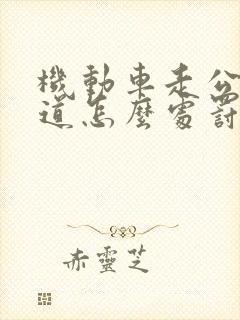 機動車走公
道怎麼處討
赤靈芝